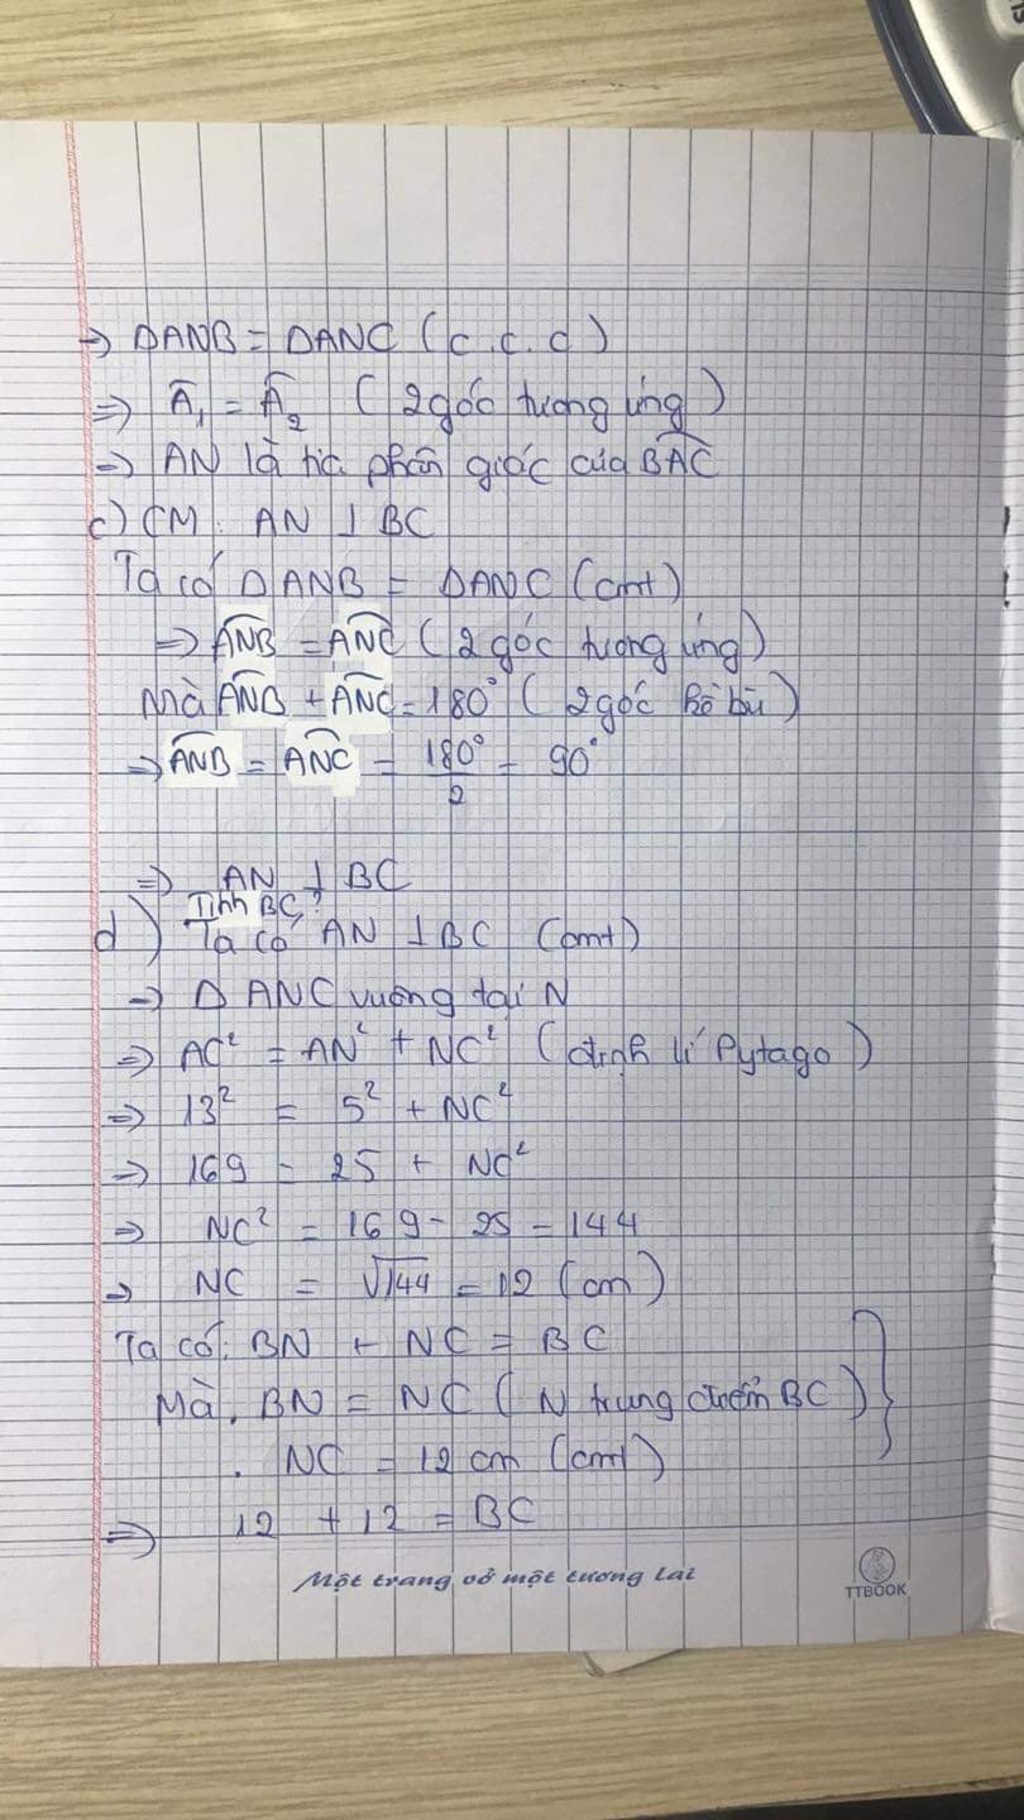 ⇒ ΔANB = ΔANC (c.c.c)
⇒ Â₁ = Â₂ (2 góc tương ứng)
⇒ AN là tia phân giác của BAC
c) CM: AN ⊥ BC
Ta có ΔANB = ΔANC (cmt)
⇒ ANB = ANC (2 góc tương ứng)
Mà ANB + ANC = 180° (2 góc kề bù)
⇒ ANB = ANC = 180°/2 = 90°
⇒ AN ⊥ BC
Tính BC?
d) Ta có AN ⊥ BC (cmt)
⇒ Δ ANC vuông tại N
⇒ AC² = AN² + NC² (định lí Pytago)
⇒ 13² = 5² + NC²
⇒ 169 = 25 + NC²
⇒ NC² = 169 - 25 = 144
⇒ NC = √144 = 12 (cm)
Ta có: BN + NC = BC
Mà. BN = NC (N trung điểm BC)
. NC = 12 cm (cmt)
⇒ 12 + 12 = BC
Một trang vở một tương lai
TTBOOK